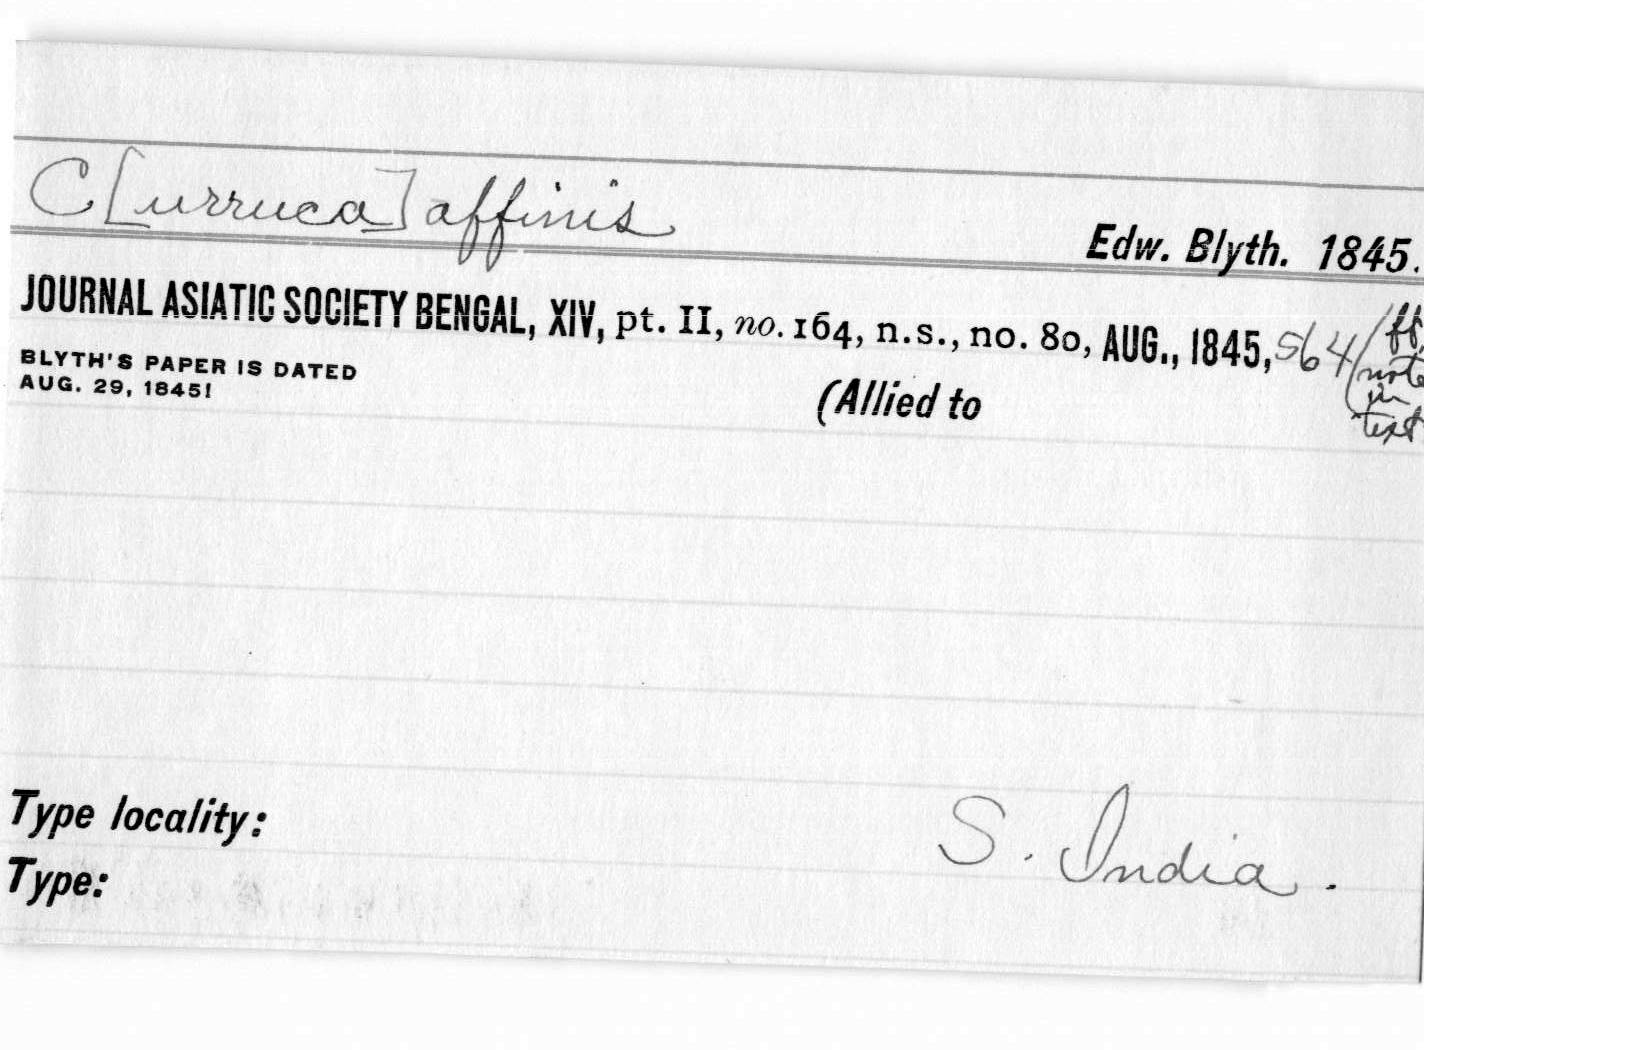 C[urruca] affinis
Edw. Blyth. 1845.
JOURNAL ASIATIC SOCIETY BENGAL, XIV, pt. II, no. 164, n.s., no. 80, AUG., 1845, 564/ft.
note
in
text
BLYTH'S PAPER IS DATED
AUG. 29, 1845!
(Allied to
Type locality:
S. India.
Type: